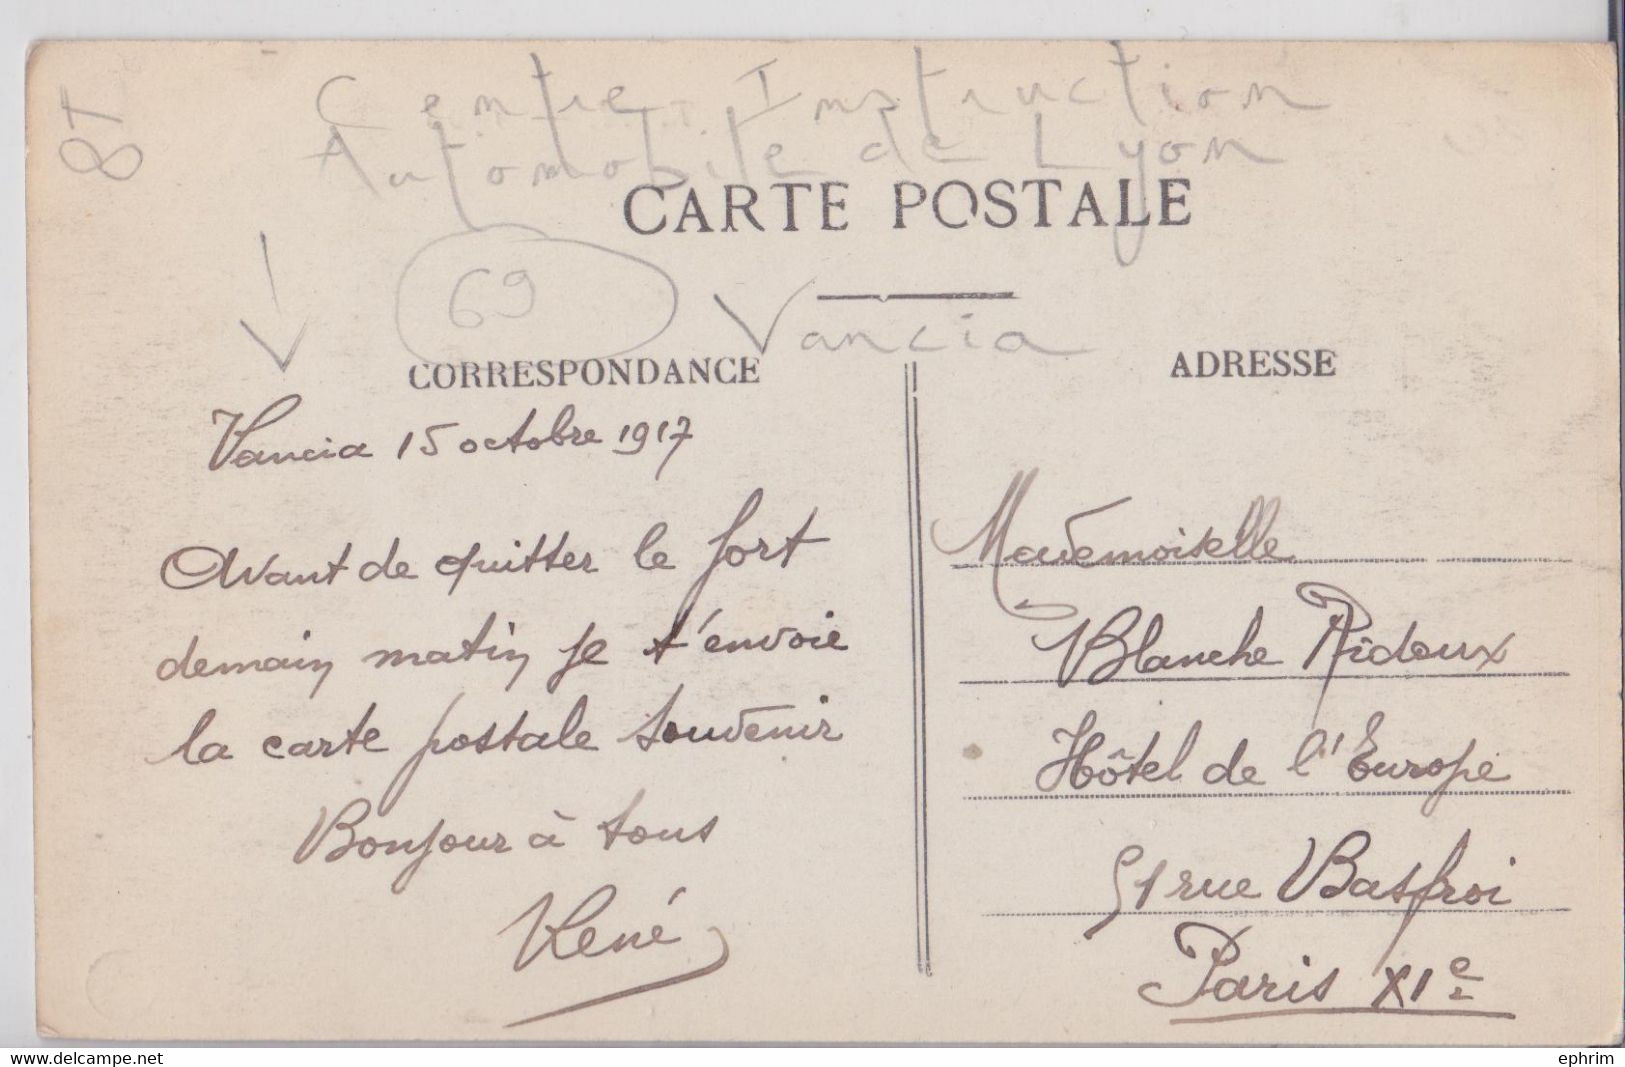 8T
Centre Instruction
Automobile de Lyon
CARTE POSTALE
69
Vancia
CORRESPONDANCE
ADRESSE
Vancia 15 octobre 1917
Avant de quitter le fort
demain matin je t'envoie
la carte postale souvenir
Bonjour à tous
René
Mademoiselle
Blanche Ridoux
Hôtel de l'Europe
51 rue Basfroi
Paris XIe
www.delcampe.net
ephrim